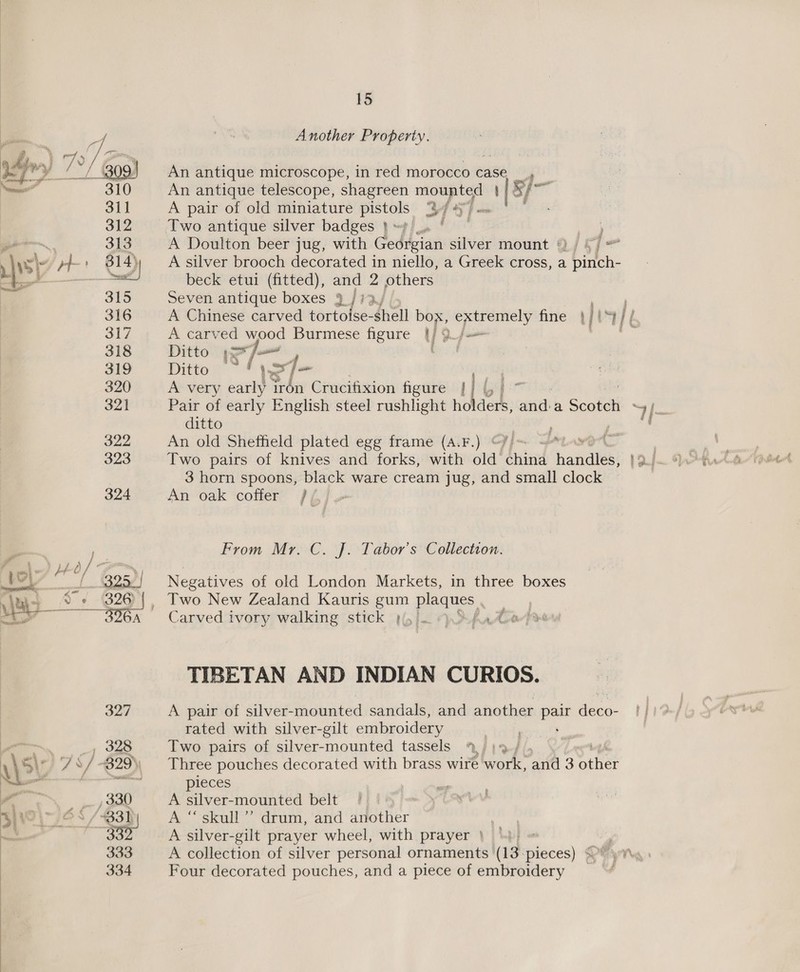 15
Another Property.
309 An antique microscope, in red morocco case
310 An antique telescope, shagreen mounted
311 A pair of old miniature pistols
312 Two antique silver badges
313 A Doulton beer jug, with Georgian silver mount
314 A silver brooch decorated in niello, a Greek cross, a pinch-
beck etui (fitted), and 2 others
315 Seven antique boxes
316 A Chinese carved tortoise-shell box, extremely fine
317 A carved wood Burmese figure
318 Ditto
319 Ditto
320 A very early iron Crucifixion figure
321 Pair of early English steel rushlight holders, and a Scotch
ditto
322 An old Sheffield plated egg frame (A.F.)
323 Two pairs of knives and forks, with old china handles,
3 horn spoons, black ware cream jug, and small clock
324 An oak coffer
From Mr. C. J. Tabor's Collection.
325 Negatives of old London Markets, in three boxes
326 Two New Zealand Kauris gum plaques
326A Carved ivory walking stick
TIBETAN AND INDIAN CURIOS.
327 A pair of silver-mounted sandals, and another pair deco-
rated with silver-gilt embroidery
328 Two pairs of silver-mounted tassels
329 Three pouches decorated with brass wire work, and 3 other
pieces
330 A silver-mounted belt
331 A “skull” drum, and another
332 A silver-gilt prayer wheel, with prayer
333 A collection of silver personal ornaments (13 pieces)
334 Four decorated pouches, and a piece of embroidery